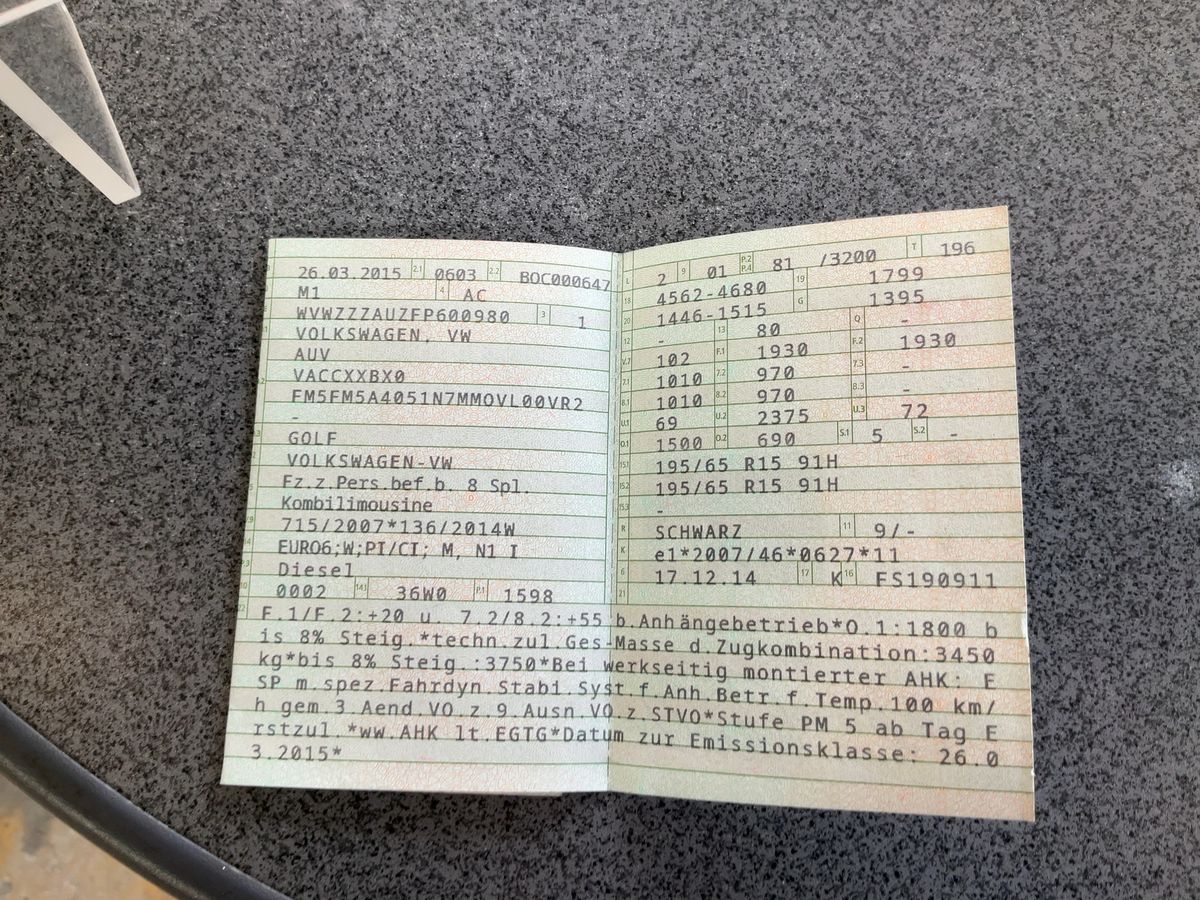 26.03.2015 2.1 0603 2.2 BOC000647
M1 4 AC
WVWZZZAUZFP600980 3 1
VOLKSWAGEN, VW
AUV
VACCXXBX0
FM5FM5A4051N7MMOVL00VR2
-
GOLF
VOLKSWAGEN-VW
Fz.z.Pers.bef.b. 8 Spl.
Kombilimousine
715/2007*136/2014W
EURO6;W;PI/CI; M, N1 I
Diesel
0002 14.1 36W0 P.1 1598
L 2 9 01 P.2 P.4 81 /3200 T 196
18 4562-4680 19 1799
20 1446-1515 G 1395
12 - 13 80 Q -
V.7 102 F.1 1930 F.2 1930
7.1 1010 7.2 970 7.3 -
8.1 1010 8.2 970 8.3 -
U.1 69 U.2 2375 U.3 72
O.1 1500 O.2 690 S.1 5 S.2 -
15.1 195/65 R15 91H
15.2 195/65 R15 91H
15.3 -
R SCHWARZ 11 9/-
K e1*2007/46*0627*11
6 17.12.14 17 K 16 FS190911
21
22 F.1/F.2:+20 u. 7.2/8.2:+55 b.Anhängebetrieb*O.1:1800 b
is 8% Steig.*techn.zul.Ges-Masse d.Zugkombination:3450
kg*bis 8% Steig.:3750*Bei werkseitig montierter AHK: E
SP m.spez.Fahrdyn.Stabi.Syst.f.Anh.Betr.f.Temp.100 km/
h gem.3.Aend.VO.z.9.Ausn.VO.z.STVO*Stufe PM 5 ab Tag E
rstzul.*ww.AHK lt.EGTG*Datum zur Emissionsklasse: 26.0
3.2015*